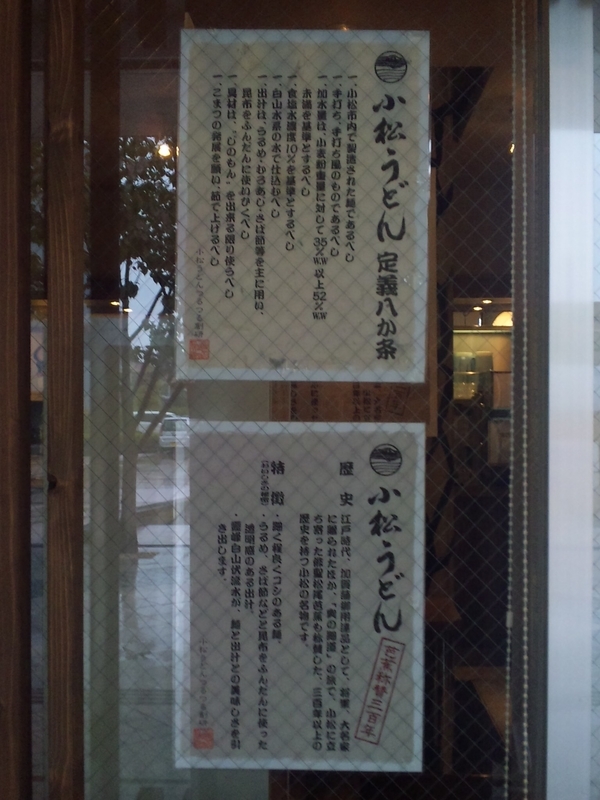 小松うどん 定義八か条
一、小松市内で製造された麺であるべし
一、手打ち、手打ち風のものであるべし
一、加水量は、小麦粉重量に対して35%W.W以上52%W.W
未満を基準とするべし
一、食塩水濃度10%を基準とするべし
一、白山水系の水で仕込むべし
一、出汁は、うるめ・むろあじ・さば節等を主に用い、
昆布をふんだんに使いひくべし
一、具材は、"じのもん"を出来る限り使うべし
一、こまつの発展を願い、茹で上げるべし
小松うどんつるつる創研
小松うどん
芭蕉称賛三百年
歴史
江戸時代、加賀藩御用達品として、将軍、大名家
に贈られたほか、「奥の細道」の旅で、小松に立
ち寄った俳聖松尾芭蕉も称賛した、三百年以上の
歴史を持つ小松の名物です。
特徴
・細く程良くコシのある麺。
・うるめ、さば節などと昆布をふんだんに使った
透明感のある出汁。
・霊峰白山伏流水が、麺と出汁との美味しさを引
き出します。
小松うどんつるつる創研